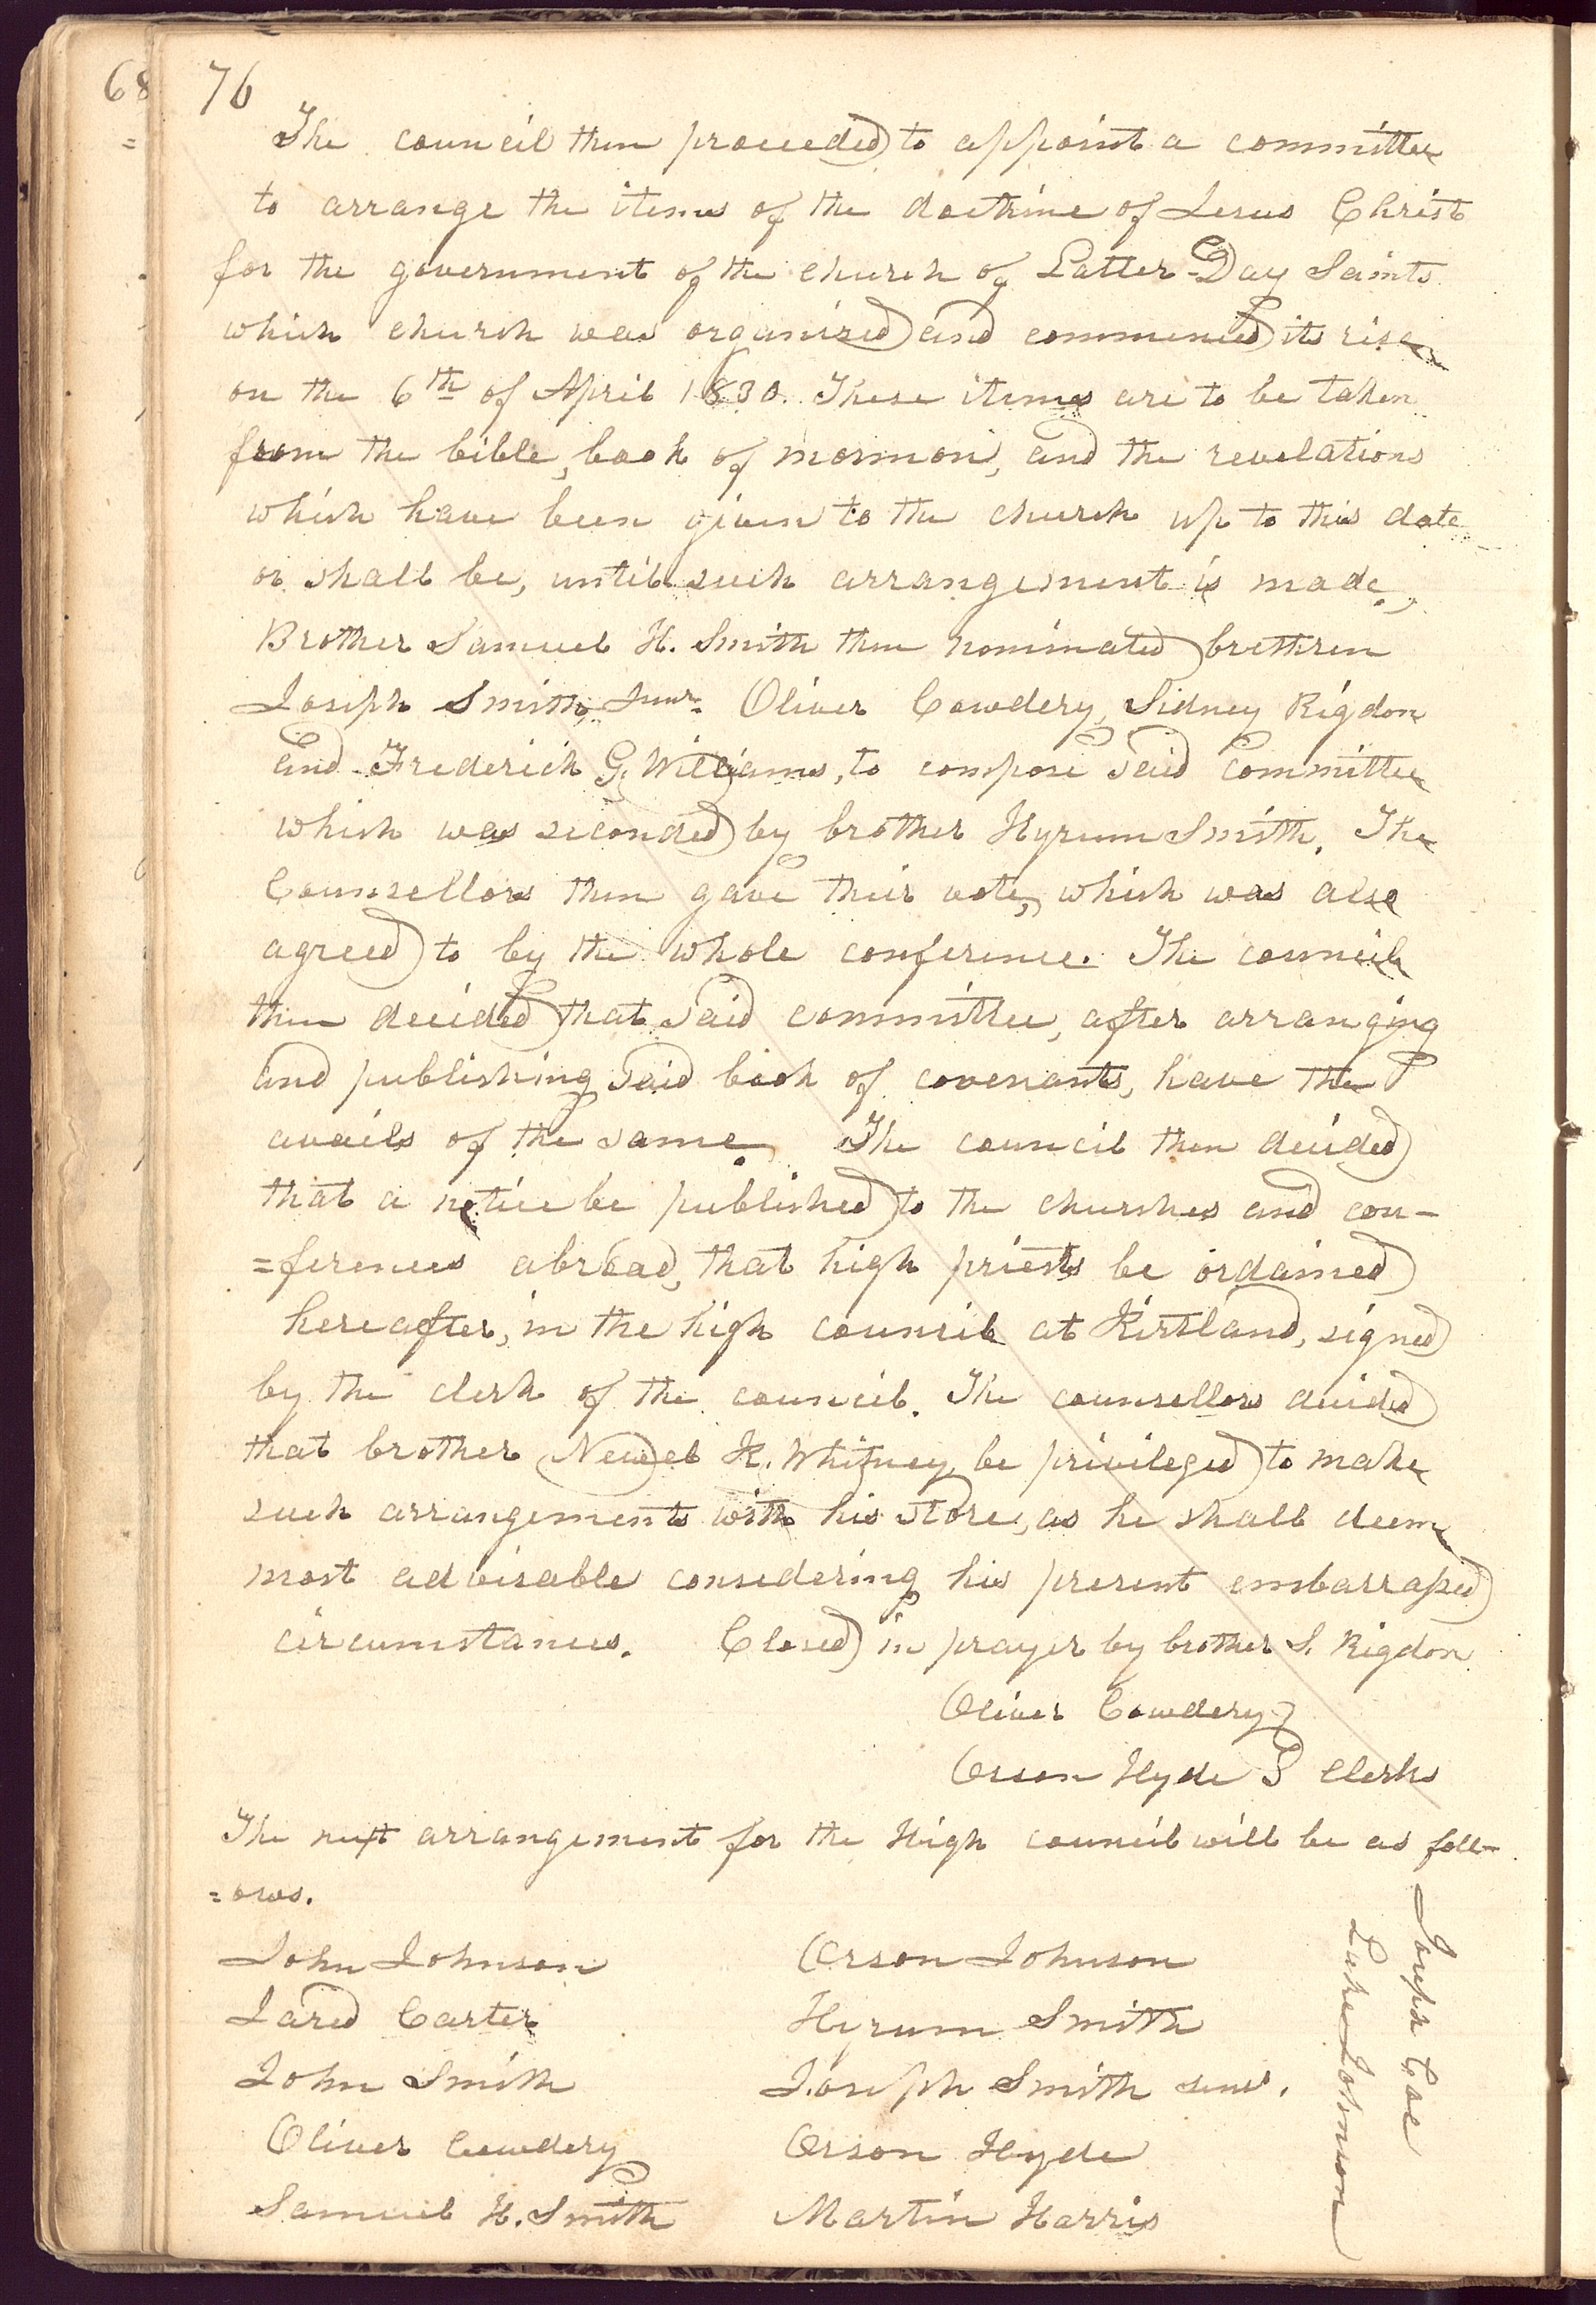 68
76
The council then proceeded to appoint a committee
to arrange the items of the doctrine of Jesus Christ
for the government of the church of Latter-Day Saints
which church was organized and commenced its rise
on the 6th of April 1830. These items are to be taken
from the bible, book of mormon, and the revelations
which have been given to the church up to this date
or shall be, until such arrangement is made.
Brother Samuel H. Smith then nominated brethren
Joseph Smith Junr. Oliver Cowdery, Sidney Rigdon
and Frederick G. Williams, to compose said committee
which was seconded by brother Hyrum Smith. The
Counsellors then gave their vote, which was also
agreed to by the whole conference. The council
then decided that said committee, after arranging
and publishing said book of covenants, have the
avails of the same. The council then decided
that a notice be published to the churches and con-
=ferences abroad, that high priests be ordained
hereafter, in the high council at Kirtland, signed
by the clerk of the council. The counsellors decided
that brother Newel K. Whitney, be privileged to make
such arrangements with his store, as he shall deem
most advisable considering his present embarrassed
circumstances. Closed in prayer by brother S. Rigdon
Oliver Cowdery }
Orson Hyde } Clerks
The next arrangement for the High council will be as foll-
=ows.
John Johnson Orson Johnson
Jared Carter Hyrum Smith
John Smith Joseph Smith senr.
Oliver Cowdery Orson Hyde
Samuel H. Smith Martin Harris
Joseph Coe
Luke Johnson